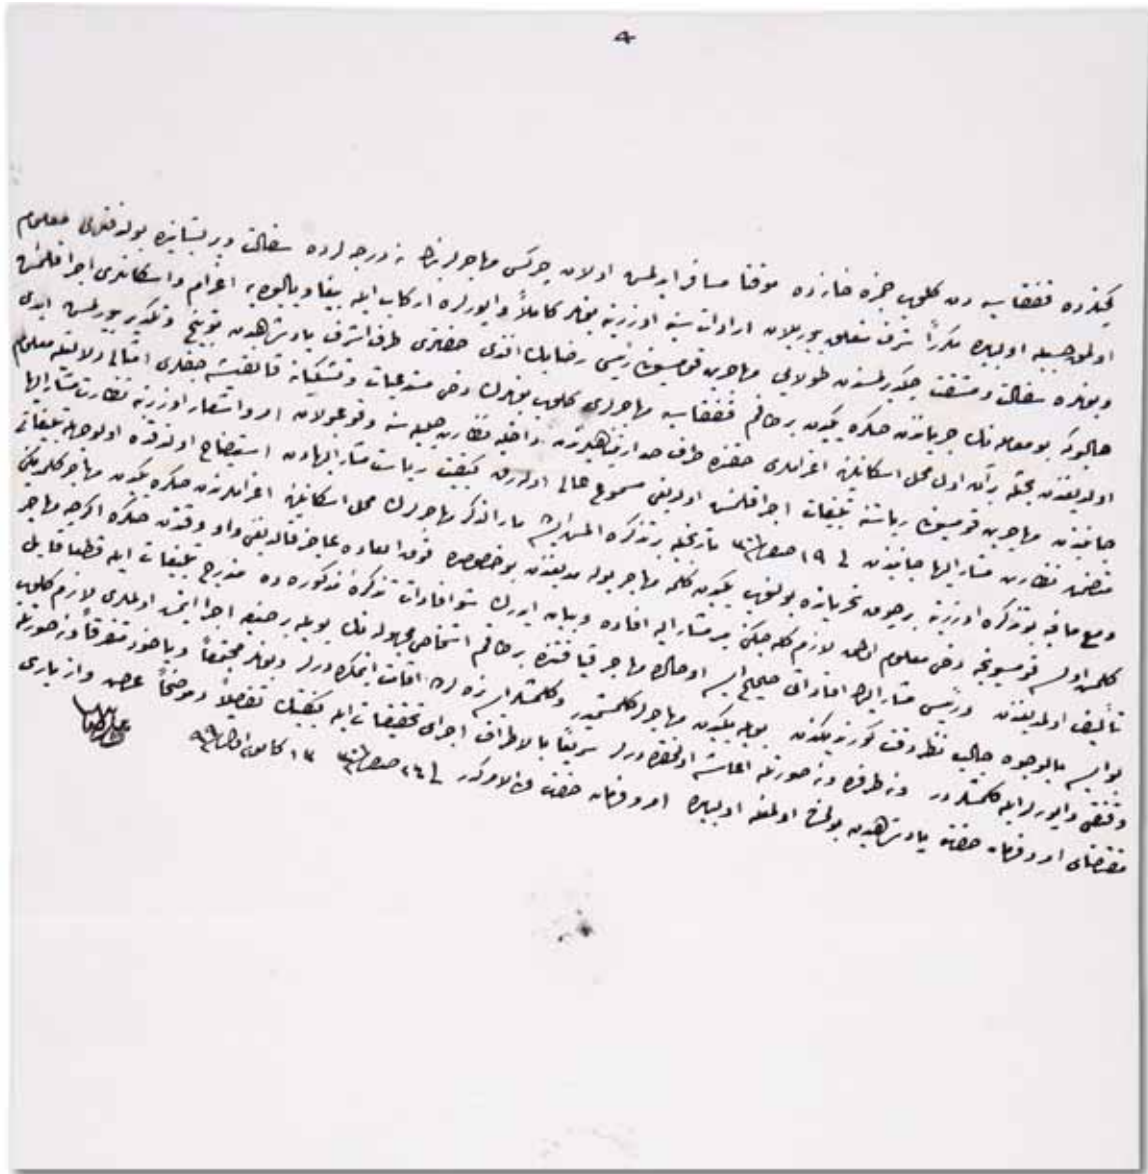 كچنده قفقاسيه دن كلوب جزه خانه ده موقتا مسافر ايدلمش اولان چركس مهاجرلرينك نه درجه لرده سفالت و پريشانيده بولندقلرى معلوم
اولمق حسبيله اولبابده مكررا شرفتعلق بيوريلان ارادات سنيه اوزرينه بونلر كاملا واپورلره اركاب ايله بيغا و ياليه اعزام و اسكانلرى اجرا قلنمش
و بونلره سفالت و مشقت چكديرلمسندن طولايى مهاجرين قوميسيونى رئيسى رضا بك افندى حضرتلرى طرف اشرف پادشاهيدن توبيخ و تكدير بيورلمش ايدى
حالبوكه بو معامله نك جرياندن صكره يكيدن بر طاقم قفقاسيه مهاجرلرى كلوب بونلرك دخى
اولديغندن بحثله بر آن اول محل اسكانلرينه اعزاملرى حقنده طرف داخليه نظارت جليله سنه وقوعبولان امر و اشعار اوزرينه نظارت مشاراليها
جانبندن مهاجرين قوميسيونى رياستنه تبليغات اجرا قلنمش اولديغى مسموع عالى اوله رق كيفيت رياست مشاراليهادن استيضاح اولندقده اولوجهله تبليغاتى
متضمن نظارت مشاراليها جانبندن فى ١٩ صفر تاريخيله بر تذكره آلنمش ايسه ده مارالذكر مهاجرلرك محل اسكانلرينه اعزاملرندن صكره يكيدن مهاجر كلديكى
و مع مافيه بو تذكره اوزرينه بر چوق تحرياتده بولنلوب يكيدن كلمه مهاجر بوله مديغندن بو خصوصده فوق العاده عاجز قالديغى و او وقتدن صكره اكرچه مهاجر
كلمش اولسه قوميسيونجه دخى معلوم اولمق لازم كله جكنى مير مشاراليه افاده و بيان ايدرك شو افادات تذكره مذكوره ده مندرج تبليغات ايله قطعا قابل
تأليف اولمديغندن و رئيس مشاراليهك افاداتى صحيح ايسه او حالده مهاجر قيافتنده بر طاقم اشخاص مجهوله نك بويله بر اجرا ايتمش اولملرى لازم كلوب
بو ايسه بالوجوه جالب نظر دقت كورنديكندن بويله يكيدن مهاجرلر كلمشميدر و كلمشلر ايسه نره لرده اقامت ايتمكده درلر و بونلر مجتمعا و ياخود متفرقا نه صورتله
و قنغى واپورلرله كلمشلردر و نه طرفدن نه صورتله اعاشه اولنمقده درلر سريعا بالاطراف اجراى تحقيقات ايله كيفيتك تفصيلا و موضحا عرض و ازبارى
مقتضاى امر و فرمان حضرت پادشاهيدن بولنمش اولمغله اولبابده امر و فرمان حضرت من له الامركدر فى ٢٦ صفر ١٣ كانون اول
على رضا